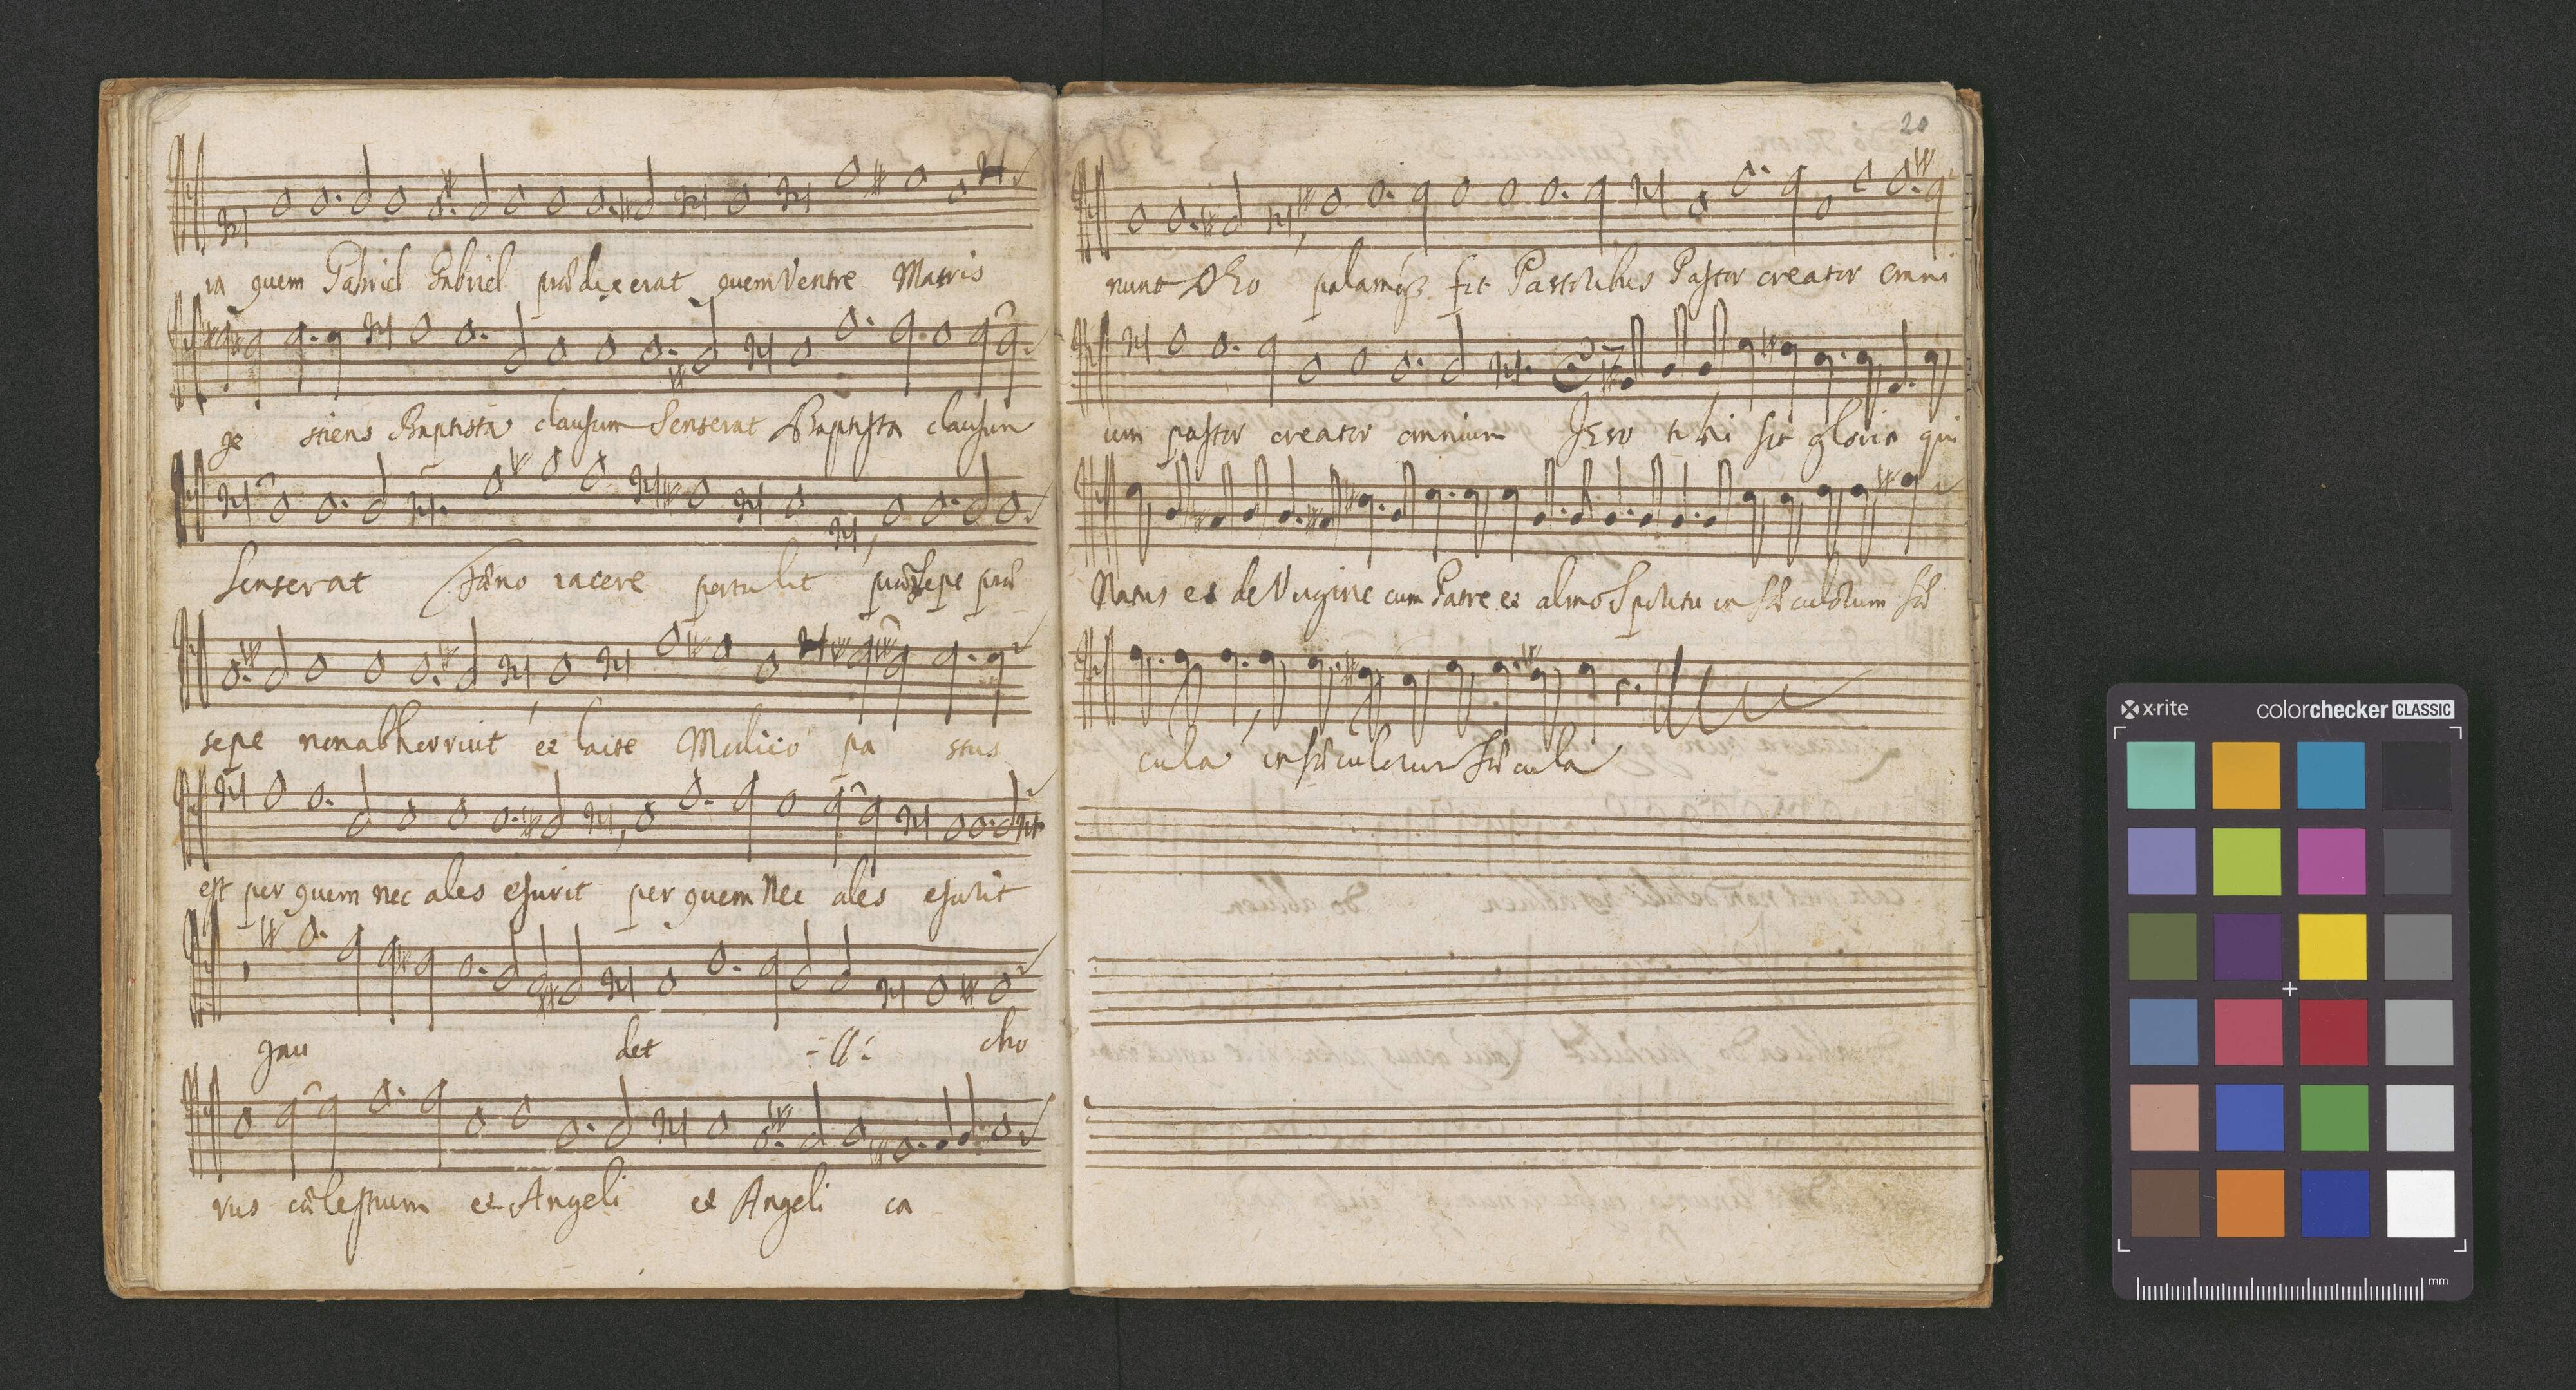 ra quem Gabriel Gabriel prædixerat quem Ventre Matris
ge stiens Baptista clausum Senserat Baptista clausum
Senserat Fæno iacere pertulit præsepe præ
sepe non abhorruit et lacte Modico pa stus
est per quem nec ales esurit per quem Nec ales esurit
gau det -//- cho
rus cælestium et Angeli et Angeli ca
20
nunt Deo palamq3 fit Pastoribus Pastor creator omni
um pastor creator omnium Jesu tibi sit gloria qui
Natus es de Virgine cum Patre et almo Spiritu in sæculorum sæ
cula in sæculorum sæcula
x-rite colorchecker CLASSIC
mm